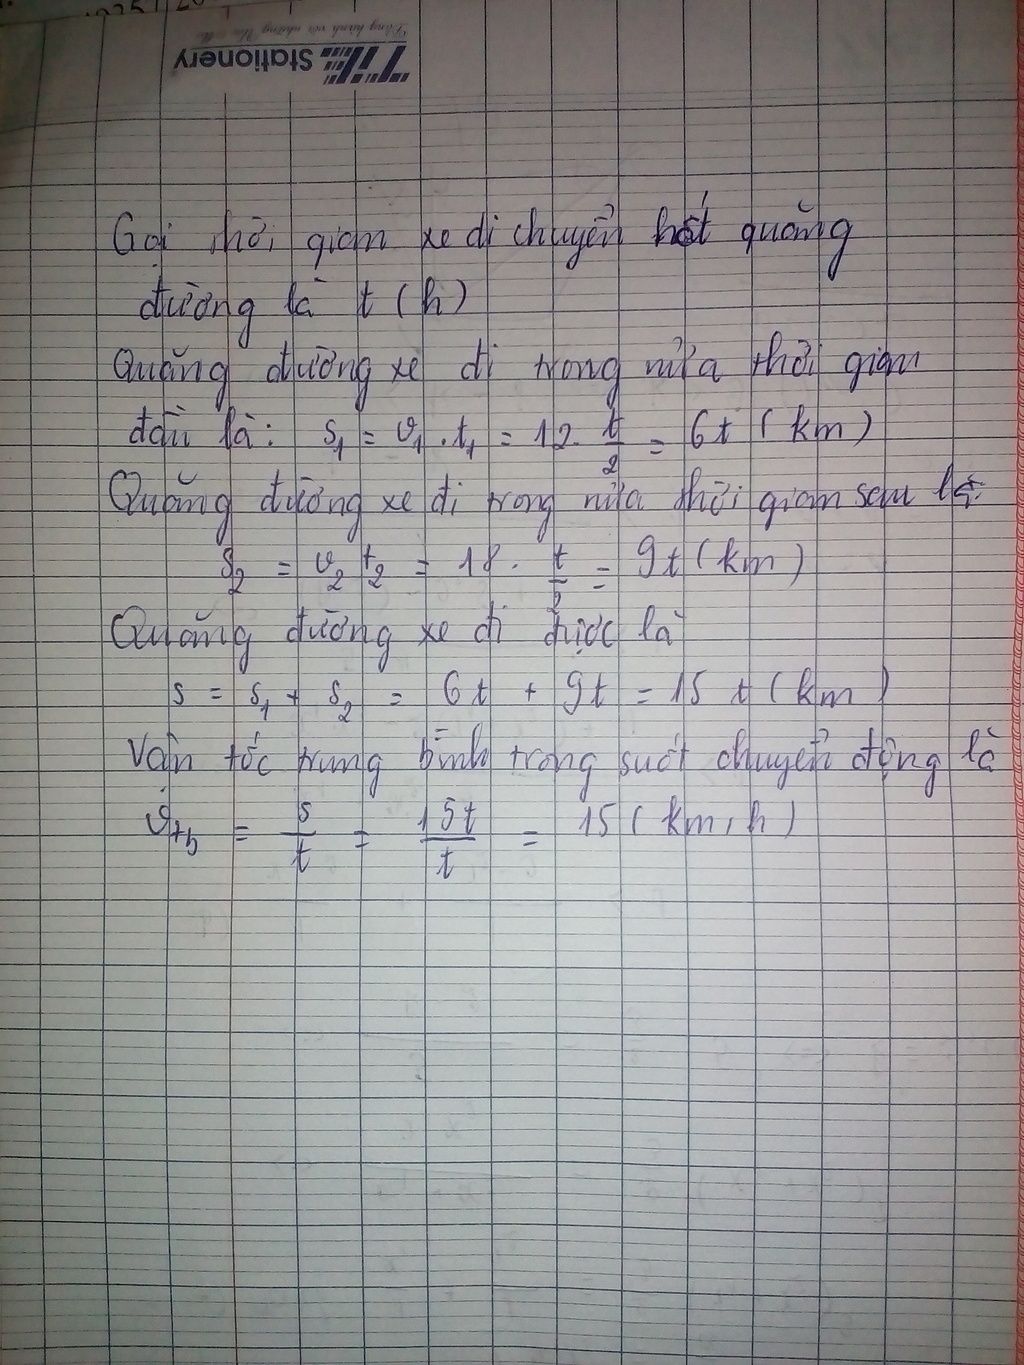 TL Stationery
Gọi thời gian xe di chuyển hết quãng
đường là t (h)
Quãng đường xe đi trong nửa thời gian
đầu là: s₁ = v₁ . t₁ = 12 . t/2 = 6t (km)
Quãng đường xe đi trong nửa thời gian sau là:
s₂ = v₂ t₂ = 18 . t/2 = 9t (km)
Quãng đường xe đi được là
s = s₁ + s₂ = 6t + 9t = 15 t (km)
Vận tốc trung bình trong suốt chuyển động là
v_tb = s/t = 15t/t = 15 (km, h)